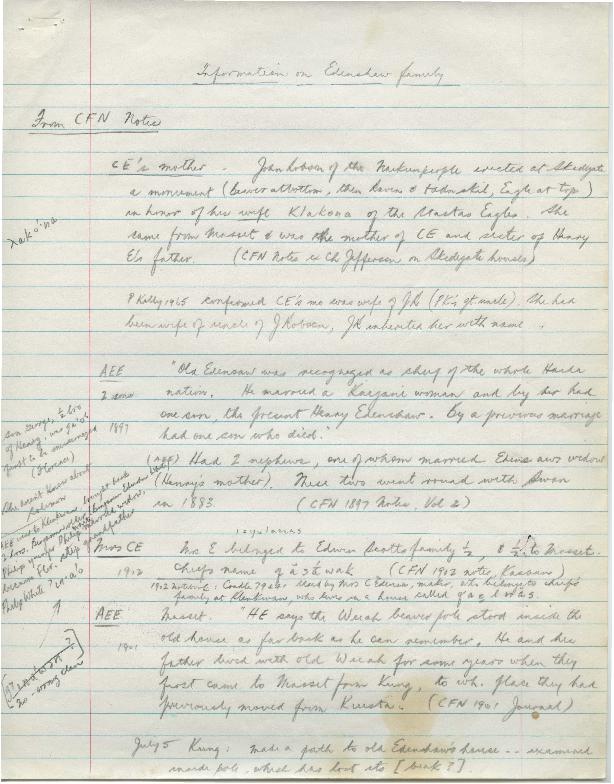 Information on Edenshaw family
From CFN Notes
CE's mother. John Robson of the people erected at Skidegate
a monument (beaver at bottom, then raven & tadnskil, Eagle at top)
in honor of his wife Klakona of the Stastas Eagles. She
came from Masset & was the mother of CE and sister of Henry
E's father. (CFN Notes ex Ch Jefferson on Skidegate houses)
xako'na
P Kelly 1965 confirmed CE's mo was wife of JR (PK's gt uncle). She had
been wife of uncle of J Robson, JR inherited her with name.
AEE
2 sons
1897
"Old Edensaw was recognized as chief of the whole Haida
nation. He married a Kaigani woman and by her had
one son, the present Henry Edenshaw. By a previous marriage
had one son who died."
(AEE) Had 2 nephews, one of whom married Edensaws widow
(Henry's mother). These two went round with Swan
in 1883. (CFN 1897 Notes, Vol 2)
son George, ½ bro
of Henry; was
first to be
(Florence)
she doesn't know about
AEE went to Klinkwan, brought back
2 boys, Benjamin
Philip married Philip's widow,
became Flo. step grandfather
Philip White
Mrs CE
1912
Mrs E belonged to Edwin Scotts family ½, & ½ to Masset.
chiefs name (CFN 1912 notes, Kasaan)
1912 notebook: Cradle used by Mrs C Edensaw, maker, she belongs to chief's
family at Klinkwan, who lives in a house called
AEE
1901
Masset. "HE says the Weiah beaver pole stood inside the
old house as far back as he can remember. He and his
father lived with old Weiah for some years when they
first came to Masset from Kung, to wh. place they had
previously moved from Kiusta. (CFN 1901 Journal)
wrong clan
July 5 Kung: made a path to old Edenshaw's house -- examined
inside pole, which has lost its [beak?]